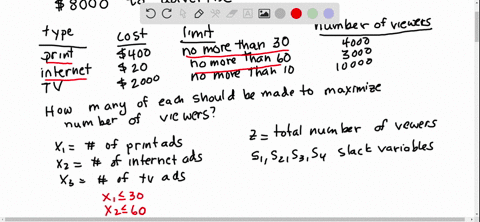 $8000 to advertise
type cost limit number of viewers
print $400 no more than 30 4000
internet $20 no more than 60 3000
TV $2000 no more than 10 10000
How many of each should be made to maximize
number of viewers?
X₁ = # of print ads
X₂ = # of internet ads
X₃ = # of tv ads
Z = total number of vewers
S₁, S₂, S₃, S₄ slack variables
X₁ ≤ 30
X₂ ≤ 60